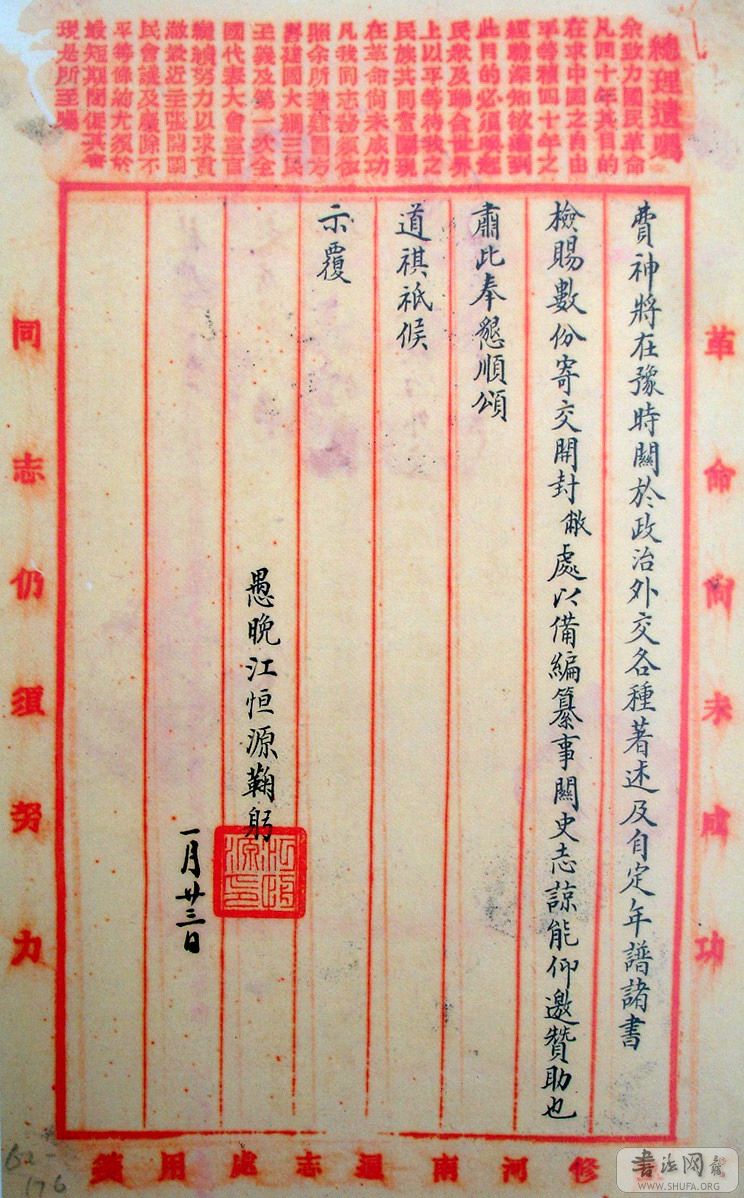 總理遺囑
余致力國民革命
凡四十年其目的
在求中國之自由
平等積四十年之
經驗深知欲達到
此目的必須喚起
民眾及聯合世界
上以平等待我之
民族共同奮鬥現
在革命尚未成功
凡我同志務須依
照余所著建國方
略建國大綱三民
主義及第一次全
國代表大會宣言
繼續努力以求貫
徹最近主張開國
民會議及廢除不
平等條約尤須於
最短期間促其實
現是所至囑
革命尚未成功
費神將在豫時關於政治外交各種著述及自定年譜諸書
檢賜數份寄交開封敝處以備編纂事關史志諒能仰邀贊助也
肅此奉懇順頌
道祺祗候
示覆
愚晚江恒源鞠躬
江恒源印
一月廿三日
同志仍須努力
修河南通志處用箋
62-
176
书法网
WWW.SHUFA.ORG